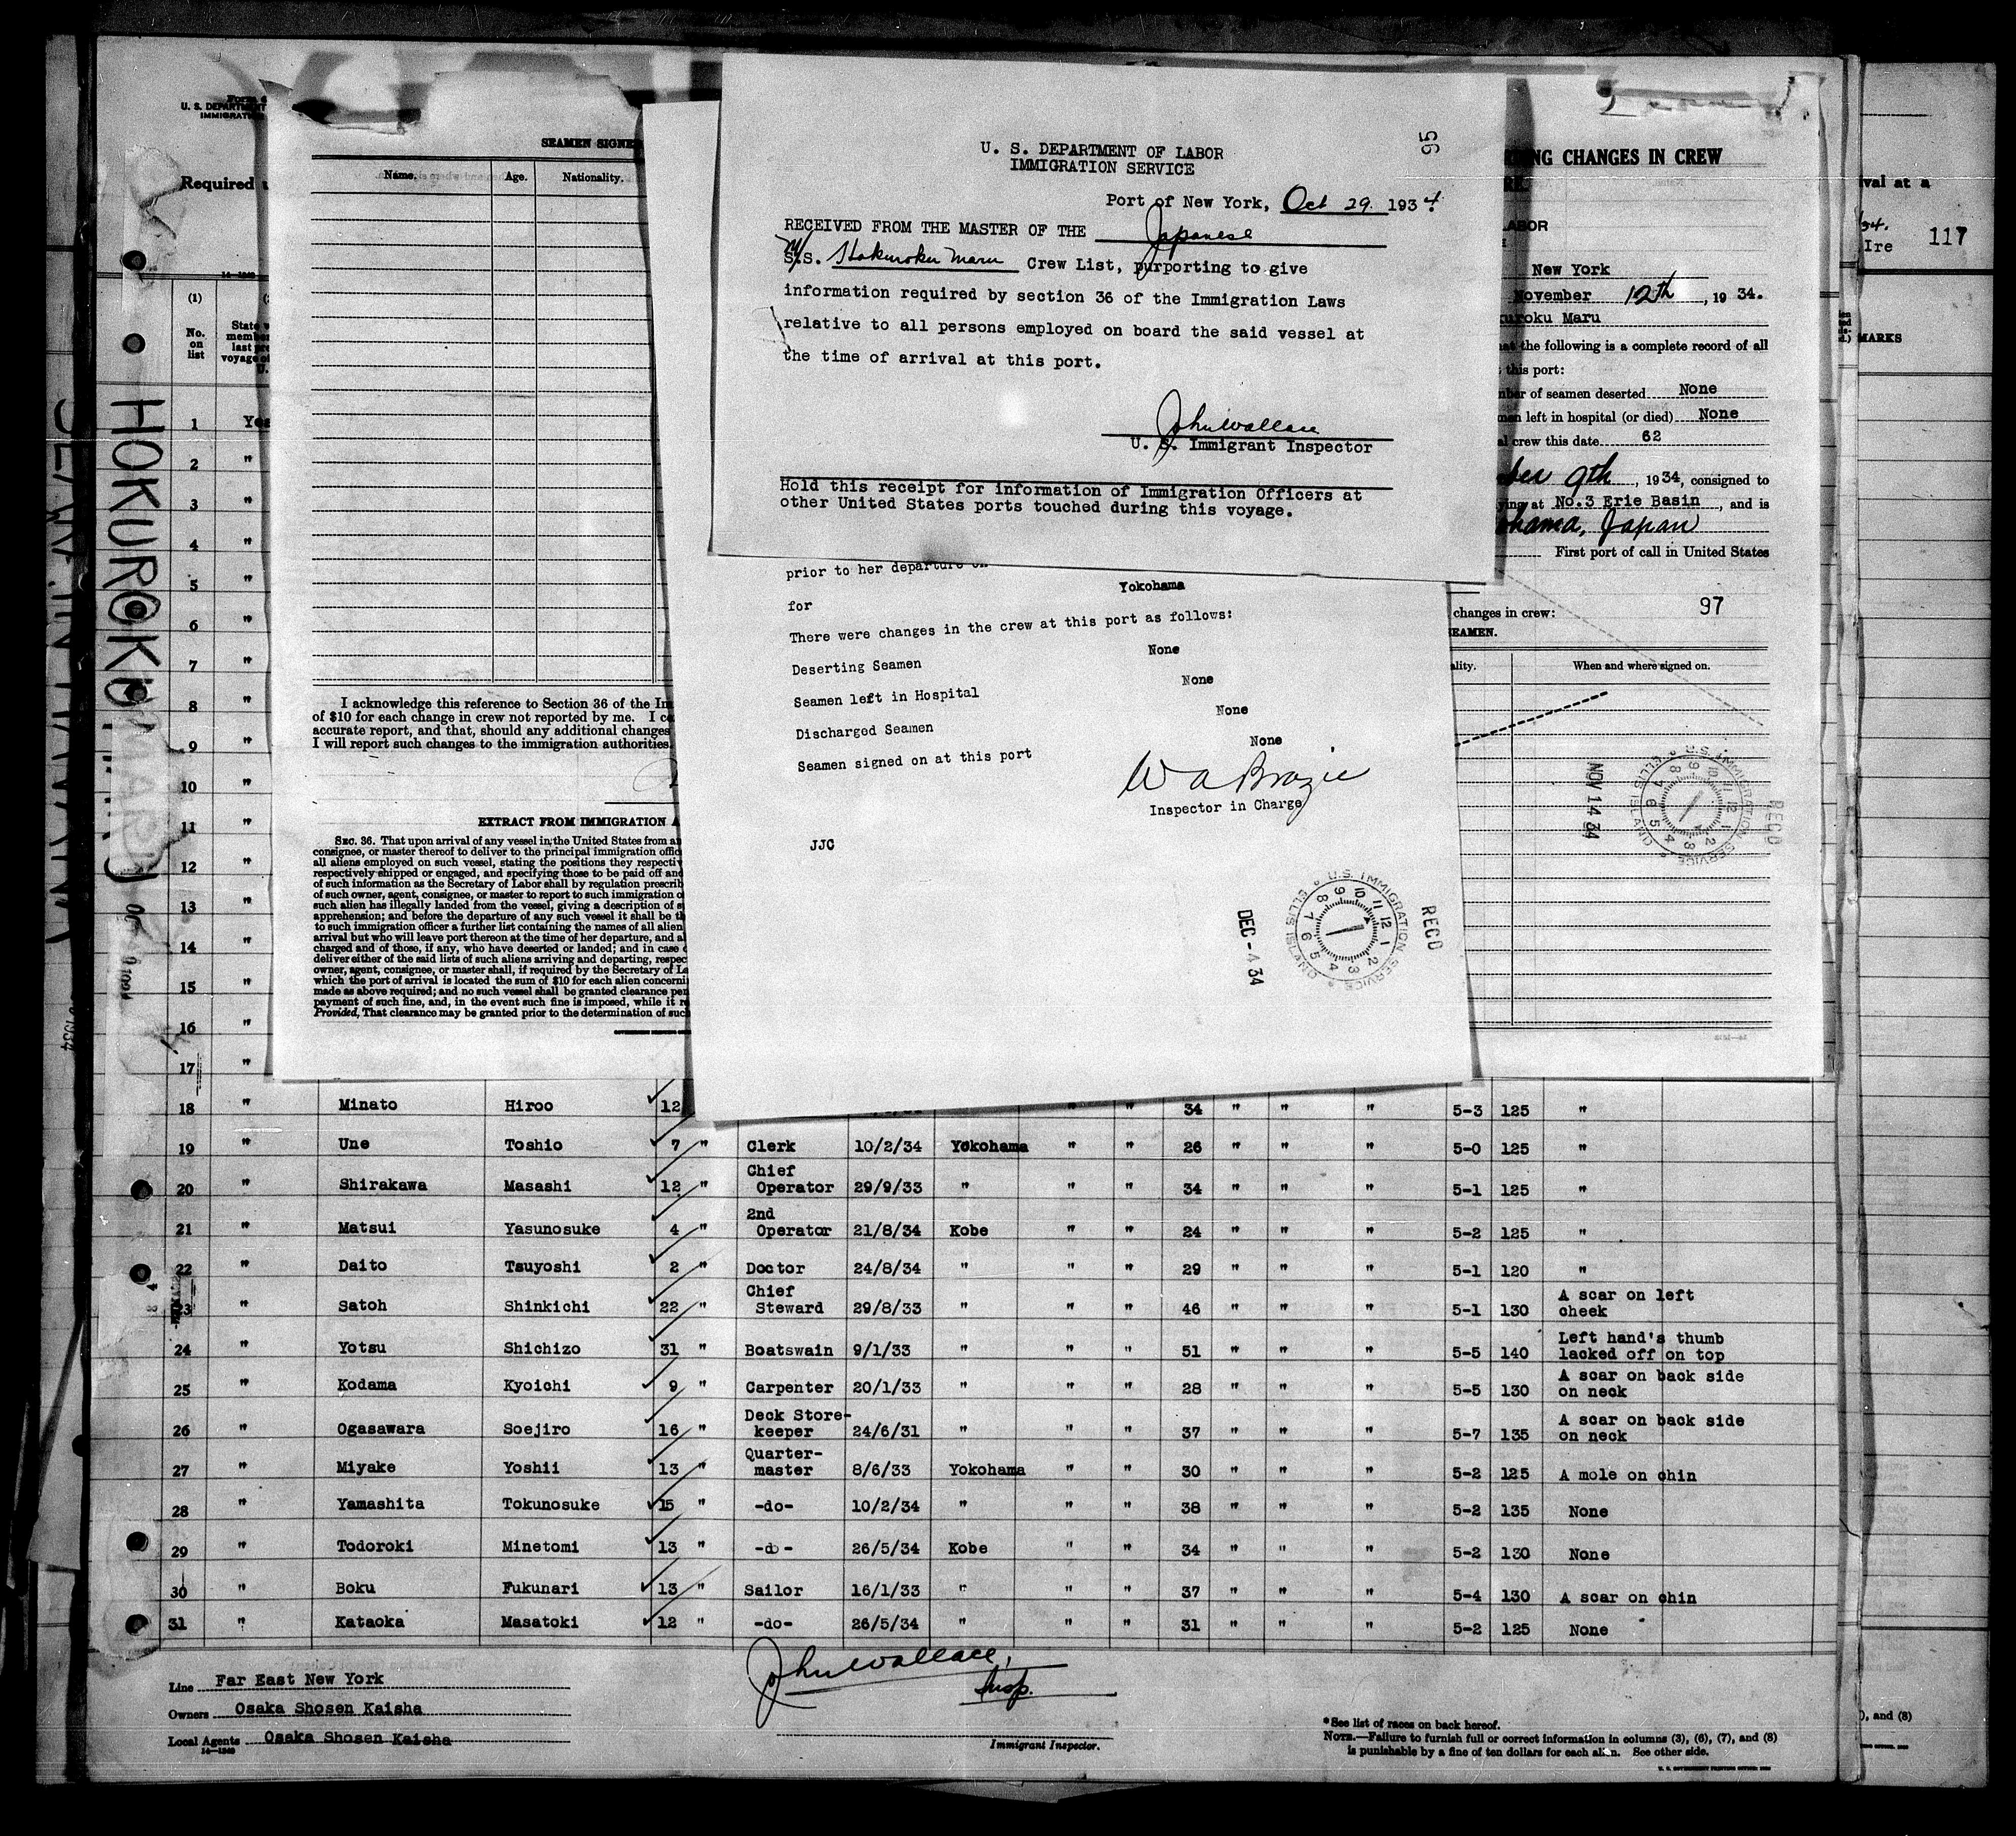 95
U. S. DEPARTMENT OF LABOR
IMMIGRATION SERVICE
Port of New York, Oct 29. 1934.
RECEIVED FROM THE MASTER OF THE Japanese
M/S.S. Hokuroku Maru Crew List, purporting to give
information required by section 36 of the Immigration Laws
relative to all persons employed on board the said vessel at
the time of arrival at this port.
John Wallace
U. S. Immigrant Inspector
Hold this receipt for information of Immigration Officers at
other United States ports touched during this voyage.
prior to her departure on
for Yokohama
There were changes in the crew at this port as follows:
Deserting Seamen None
Seamen left in Hospital None
Discharged Seamen None
Seamen signed on at this port None
W A Brazie
Inspector in Charge
JJC
DEC -4 34
U.S. IMMIGRATION SERVICE ELLIS ISLAND
RECD
U. S. DEPARTMENT
IMMIGRAT
Required
(1)
No.
on
list
HOKUROKU MARU
SEAMEN SIGNE
Name. Age. Nationality.
I acknowledge this reference to Section 36 of the Im
of $10 for each change in crew not reported by me. I ce
accurate report, and that, should any additional changes
I will report such changes to the immigration authorities.
EXTRACT FROM IMMIGRATION A
SEC. 36. That upon arrival of any vessel in the United States from an
consignee, or master thereof to deliver to the principal immigration offic
all aliens employed on such vessel, stating the positions they respectiv
respectively shipped or engaged, and specifying those to be paid off and
of such information as the Secretary of Labor shall by regulation prescrib
of such owner, agent, consignee, or master to report to such immigration o
such alien has illegally landed from the vessel, giving a description of s
apprehension; and before the departure of any such vessel it shall be th
to such immigration officer a further list containing the names of all alien
arrival but who will leave port thereon at the time of her departure, and al
charged and of those, if any, who have deserted or landed; and in case o
deliver either of the said lists of such aliens arriving and departing, respec
owner, agent, consignee, or master shall, if required by the Secretary of La
which the port of arrival is located the sum of $10 for each alien concerni
made as above required; and no such vessel shall be granted clearance pen
payment of such fine, and, in the event such fine is imposed, while it r
Provided, That clearance may be granted prior to the determination of suc
NG CHANGES IN CREW
LABOR
New York
November 12th, 1934.
uroku Maru
at the following is a complete record of all
this port:
nber of seamen deserted None
men left in hospital (or died) None
al crew this date 62
ber 9th, 1934, consigned to
ying at No.3 Erie Basin, and is
ohama, Japan
First port of call in United States
97
changes in crew:
EAMEN.
ality. When and where signed on.
NOV 14 34
U.S. IMMIGRATION SERVICE ELLIS ISLAND
RECD
val at a
Ire 117
MARKS
1 Yes
2 "
3 "
4 "
5 "
6 "
7 "
8 "
9 "
10 "
11 "
12 "
13 "
14 "
15 "
16 "
17 "
18 " Minato Hiroo 12 " " 34 " " " 5-3 125 "
19 " Une Toshio 7 " Clerk 10/2/34 Yokohama " " 26 " " " 5-0 125 "
20 " Shirakawa Masashi 12 " Chief Operator 29/9/33 " " " 34 " " " 5-1 125 "
21 " Matsui Yasunosuke 4 " 2nd Operator 21/8/34 Kobe " " 24 " " " 5-2 125 "
22 " Daito Tsuyoshi 2 " Doctor 24/8/34 " " " 29 " " " 5-1 120 "
23 " Satoh Shinkichi 22 " Chief Steward 29/8/33 " " " 46 " " " 5-1 130 A scar on left cheek
24 " Yotsu Shichizo 31 " Boatswain 9/1/33 " " " 51 " " " 5-5 140 Left hand's thumb lacked off on top
25 " Kodama Kyoichi 9 " Carpenter 20/1/33 " " " 28 " " " 5-5 130 A scar on back side on neck
26 " Ogasawara Soejiro 16 " Deck Store-keeper 24/6/31 " " " 37 " " " 5-7 135 A scar on back side on neck
27 " Miyake Yoshii 13 " Quarter-master 8/6/33 Yokohama " " 30 " " " 5-2 125 A mole on chin
28 " Yamashita Tokunosuke 15 " -do- 10/2/34 " " " 38 " " " 5-2 135 None
29 " Todoroki Minetomi 13 " -do- 26/5/34 Kobe " " 34 " " " 5-2 130 None
30 " Boku Fukunari 13 " Sailor 16/1/33 " " " 37 " " " 5-4 130 A scar on chin
31 " Kataoka Masatoki 12 " -do- 26/5/34 " " " 31 " " " 5-2 125 None
Line Far East New York
Owners Osaka Shosen Kaisha
Local Agents Osaka Shosen Kaisha
14-1240
John Wallace, Insp.
Immigrant Inspector.
*See list of races on back hereof.
NOTE.—Failure to furnish full or correct information in columns (3), (6), (7), and (8)
is punishable by a fine of ten dollars for each alien. See other side.
), and (8)